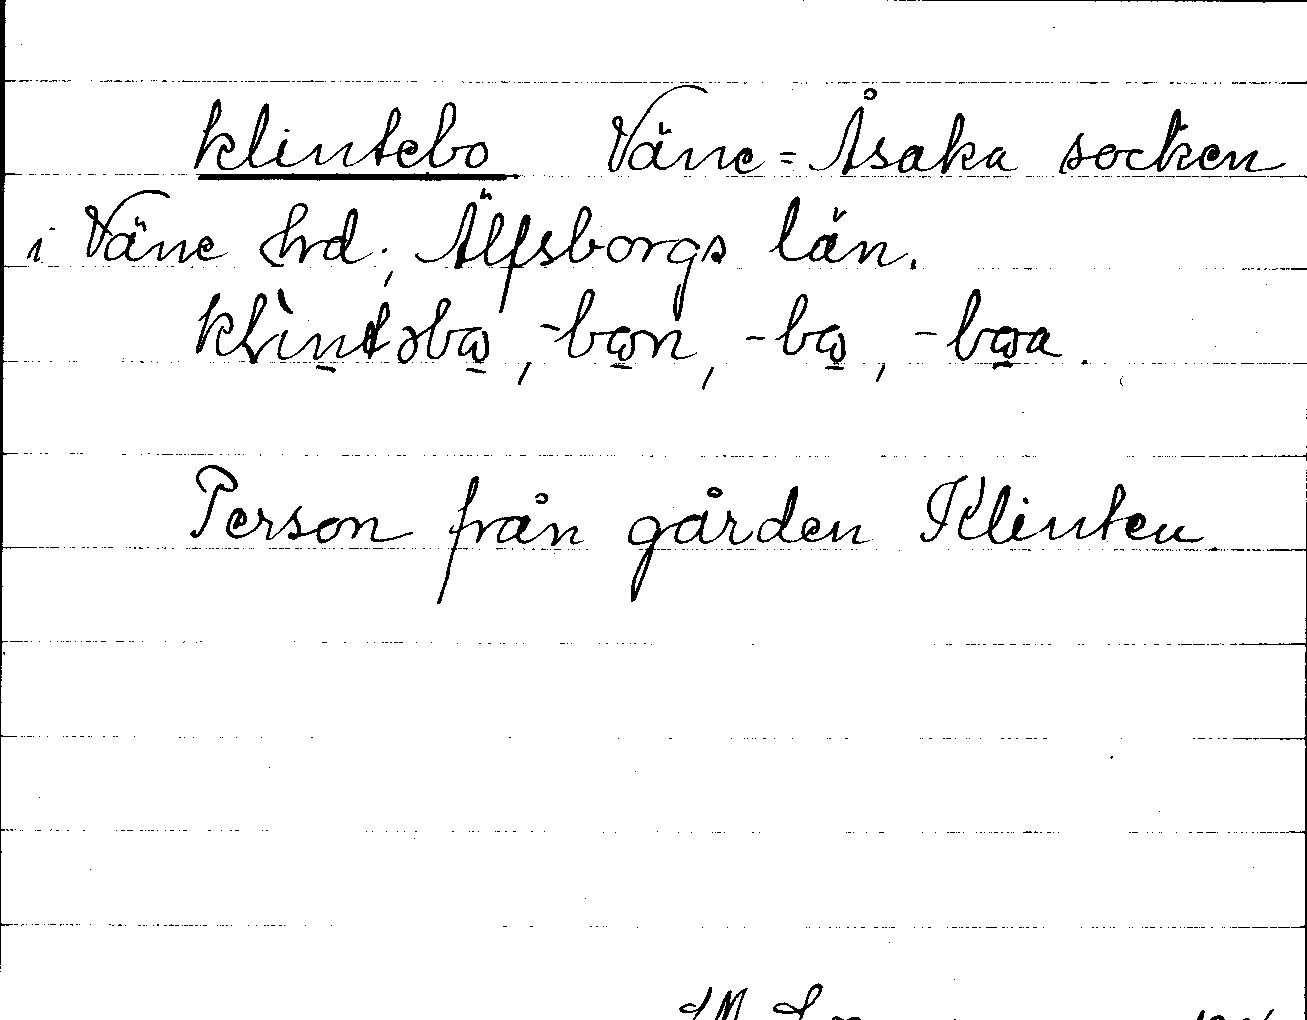 klintebo Väne=Åsaka socken
i Väne hrd; Älfsborgs län.
klìntəbɷ, -bɷn, -bɷ, -bɷa.
Person från gården Klinten.